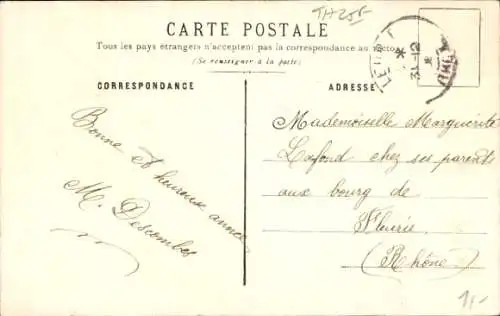 CARTE POSTALE
Tous les pays étrangers n'acceptent pas la correspondance au recto
(Se renseigner à la poste)
CORRESPONDANCE
Bonne et heureuse année
M. Descombes
ADRESSE
31-12
Mademoiselle Marguerite
Lafond chez ses parents
aux bourg de
Fleurie
(Rhône)